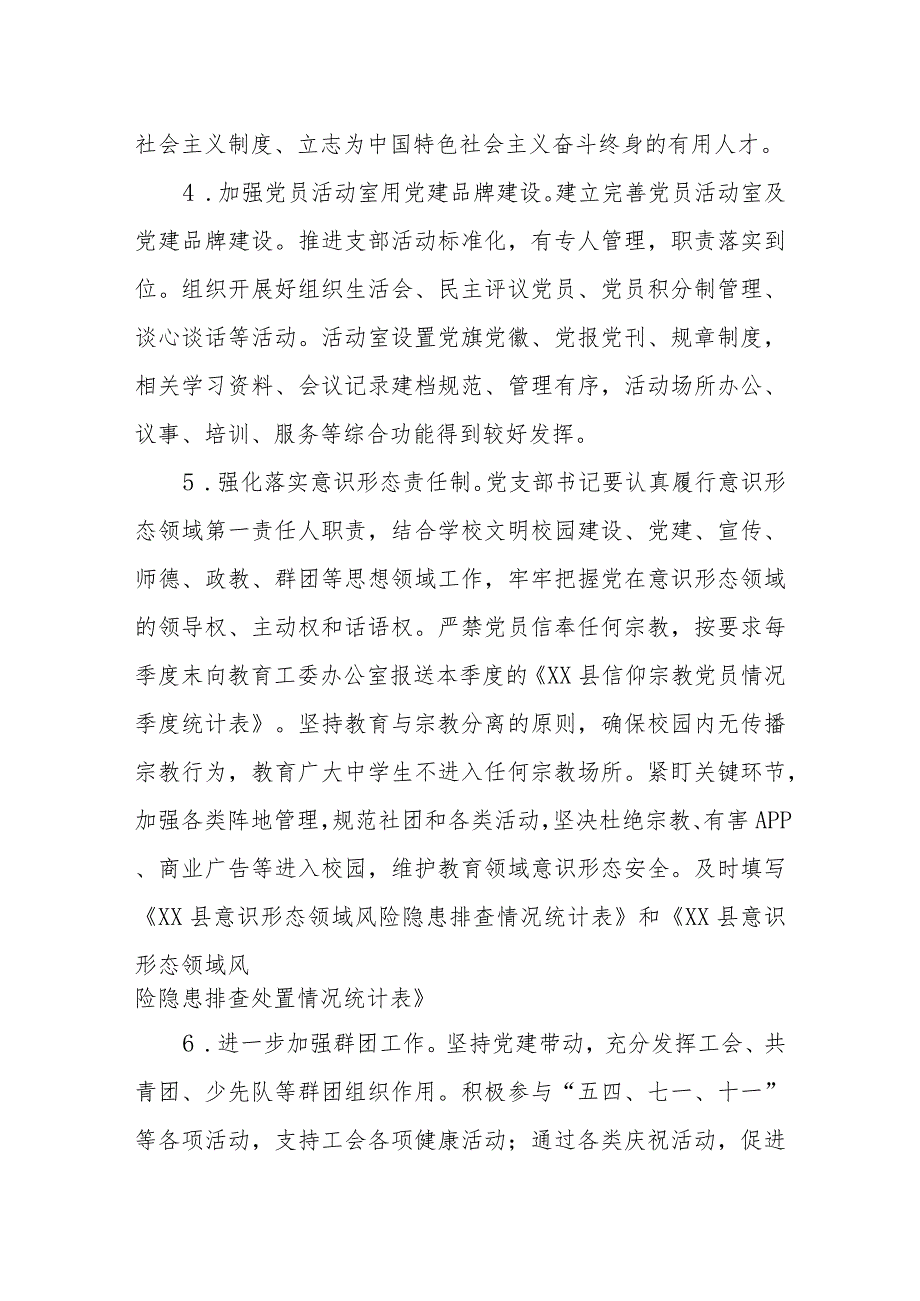 社会主义制度、立志为中国特色社会主义奋斗终身的有用人才。
4．加强党员活动室用党建品牌建设。建立完善党员活动室及
党建品牌建设。推进支部活动标准化，有专人管理，职责落实到
位。组织开展好组织生活会、民主评议党员、党员积分制管理、
谈心谈话等活动。活动室设置党旗党徽、党报党刊、规章制度，
相关学习资料、会议记录建档规范、管理有序，活动场所办公、
议事、培训、服务等综合功能得到较好发挥。
5．强化落实意识形态责任制。党支部书记要认真履行意识形
态领域第一责任人职责，结合学校文明校园建设、党建、宣传、
师德、政教、群团等思想领域工作，牢牢把握党在意识形态领域
的领导权、主动权和话语权。严禁党员信奉任何宗教，按要求每
季度末向教育工委办公室报送本季度的《XX县信仰宗教党员情况
季度统计表》。坚持教育与宗教分离的原则，确保校园内无传播
宗教行为，教育广大中学生不进入任何宗教场所。紧盯关键环节，
加强各类阵地管理，规范社团和各类活动，坚决杜绝宗教、有害APP
、商业广告等进入校园，维护教育领域意识形态安全。及时填写
《XX县意识形态领域风险隐患排查情况统计表》和《XX县意识
形态领域风
险隐患排查处置情况统计表》
6．进一步加强群团工作。坚持党建带动，充分发挥工会、共
青团、少先队等群团组织作用。积极参与“五四、七一、十一”
等各项活动，支持工会各项健康活动；通过各类庆祝活动，促进